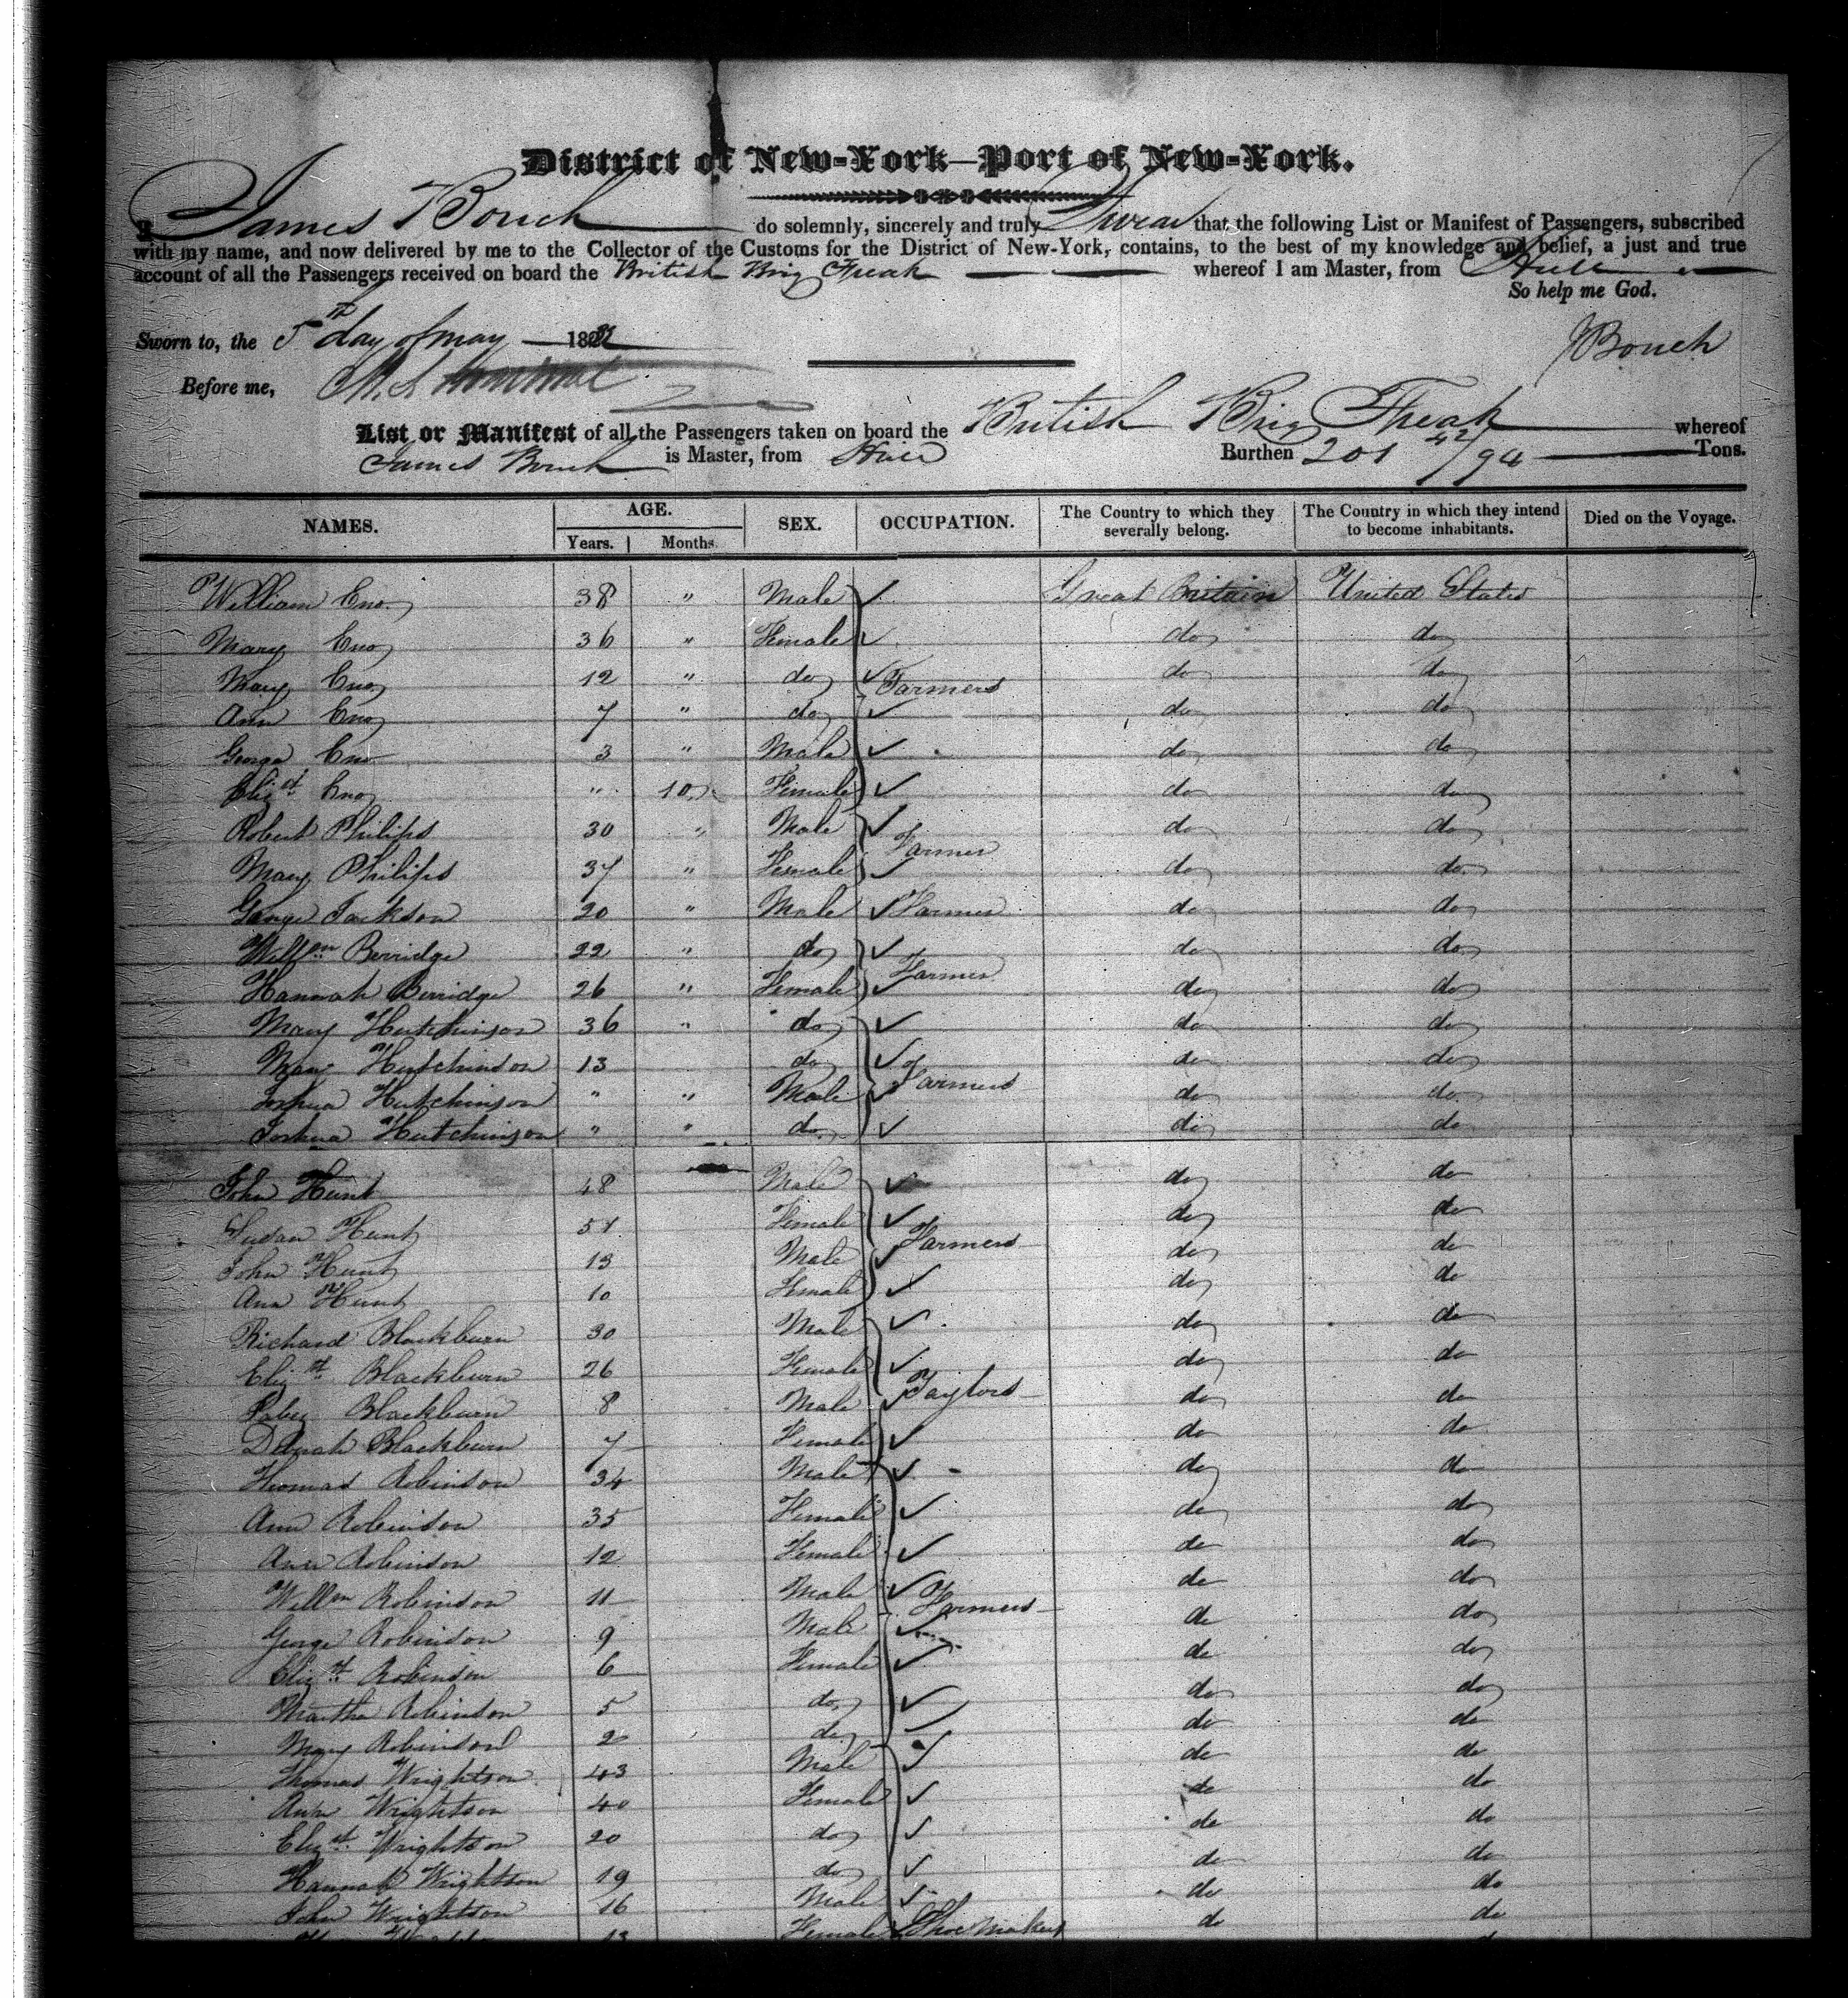 District of New-York—Port of New-York.
I James Bouch do solemnly, sincerely and truly Swear that the following List or Manifest of Passengers, subscribed
with my name, and now delivered by me to the Collector of the Customs for the District of New-York, contains, to the best of my knowledge and belief, a just and true
account of all the Passengers received on board the British Brig Freak whereof I am Master, from Hull
So help me God.
Sworn to, the 5th day of may 182
JBouch
Before me,
List or Manifest of all the Passengers taken on board the British Brig Freak whereof
James Bouch is Master, from Hull Burthen 201 42/94 Tons.
NAMES. AGE. SEX. OCCUPATION. The Country to which they severally belong. The Country in which they intend to become inhabitants. Died on the Voyage.
Years. Months.
William Eno 38 " Male Great Britain United States
Mary Eno 36 " Female do do
Mary Eno 12 " do Farmers do do
Ann Eno 7 " do do do
George Eno 3 " Male do do
Elizt Eno " 10 Female do do
Robert Philips 30 " Male Farmer do do
Mary Philips 37 " Female do do
George Jackson 20 " Male Farmer do do
Willm Berridge 22 " do Farmer do do
Hannah Berridge 26 " Female do do
Mary Hutchinson 36 " do do do
Mary Hutchinson 13 do Farmers do do
Joshua Hutchinson " " Male do do
Joshua Hutchinson " " do do do
John Hunt 48 Male do do
Susan Hunt 51 Female Farmers do do
John Hunt 13 Male do do
Ann Hunt 10 Female do do
Richard Blackburn 30 Male do do
Elizt Blackburn 26 Female do do
Blackburn 8 Male Taylors do do
Blackburn 7 Female do do
Thomas Robinson 34 Male do do
Ann Robinson 35 Female do do
Ann Robinson 12 Female do do
Willm Robinson 11 Male Farmers do do
George Robinson 9 Male do do
Elizt Robinson 6 Female do do
Martha Robinson 5 do do do
Mary Robinson 2 do do do
Thomas Wrightson 43 Male do do
Ann Wrightson 40 Female do do
Elizt Wrightson 20 do do do
Hannah Wrightson 19 do do do
John Wrightson 16 Male do do
13 Female Shoemakers do do